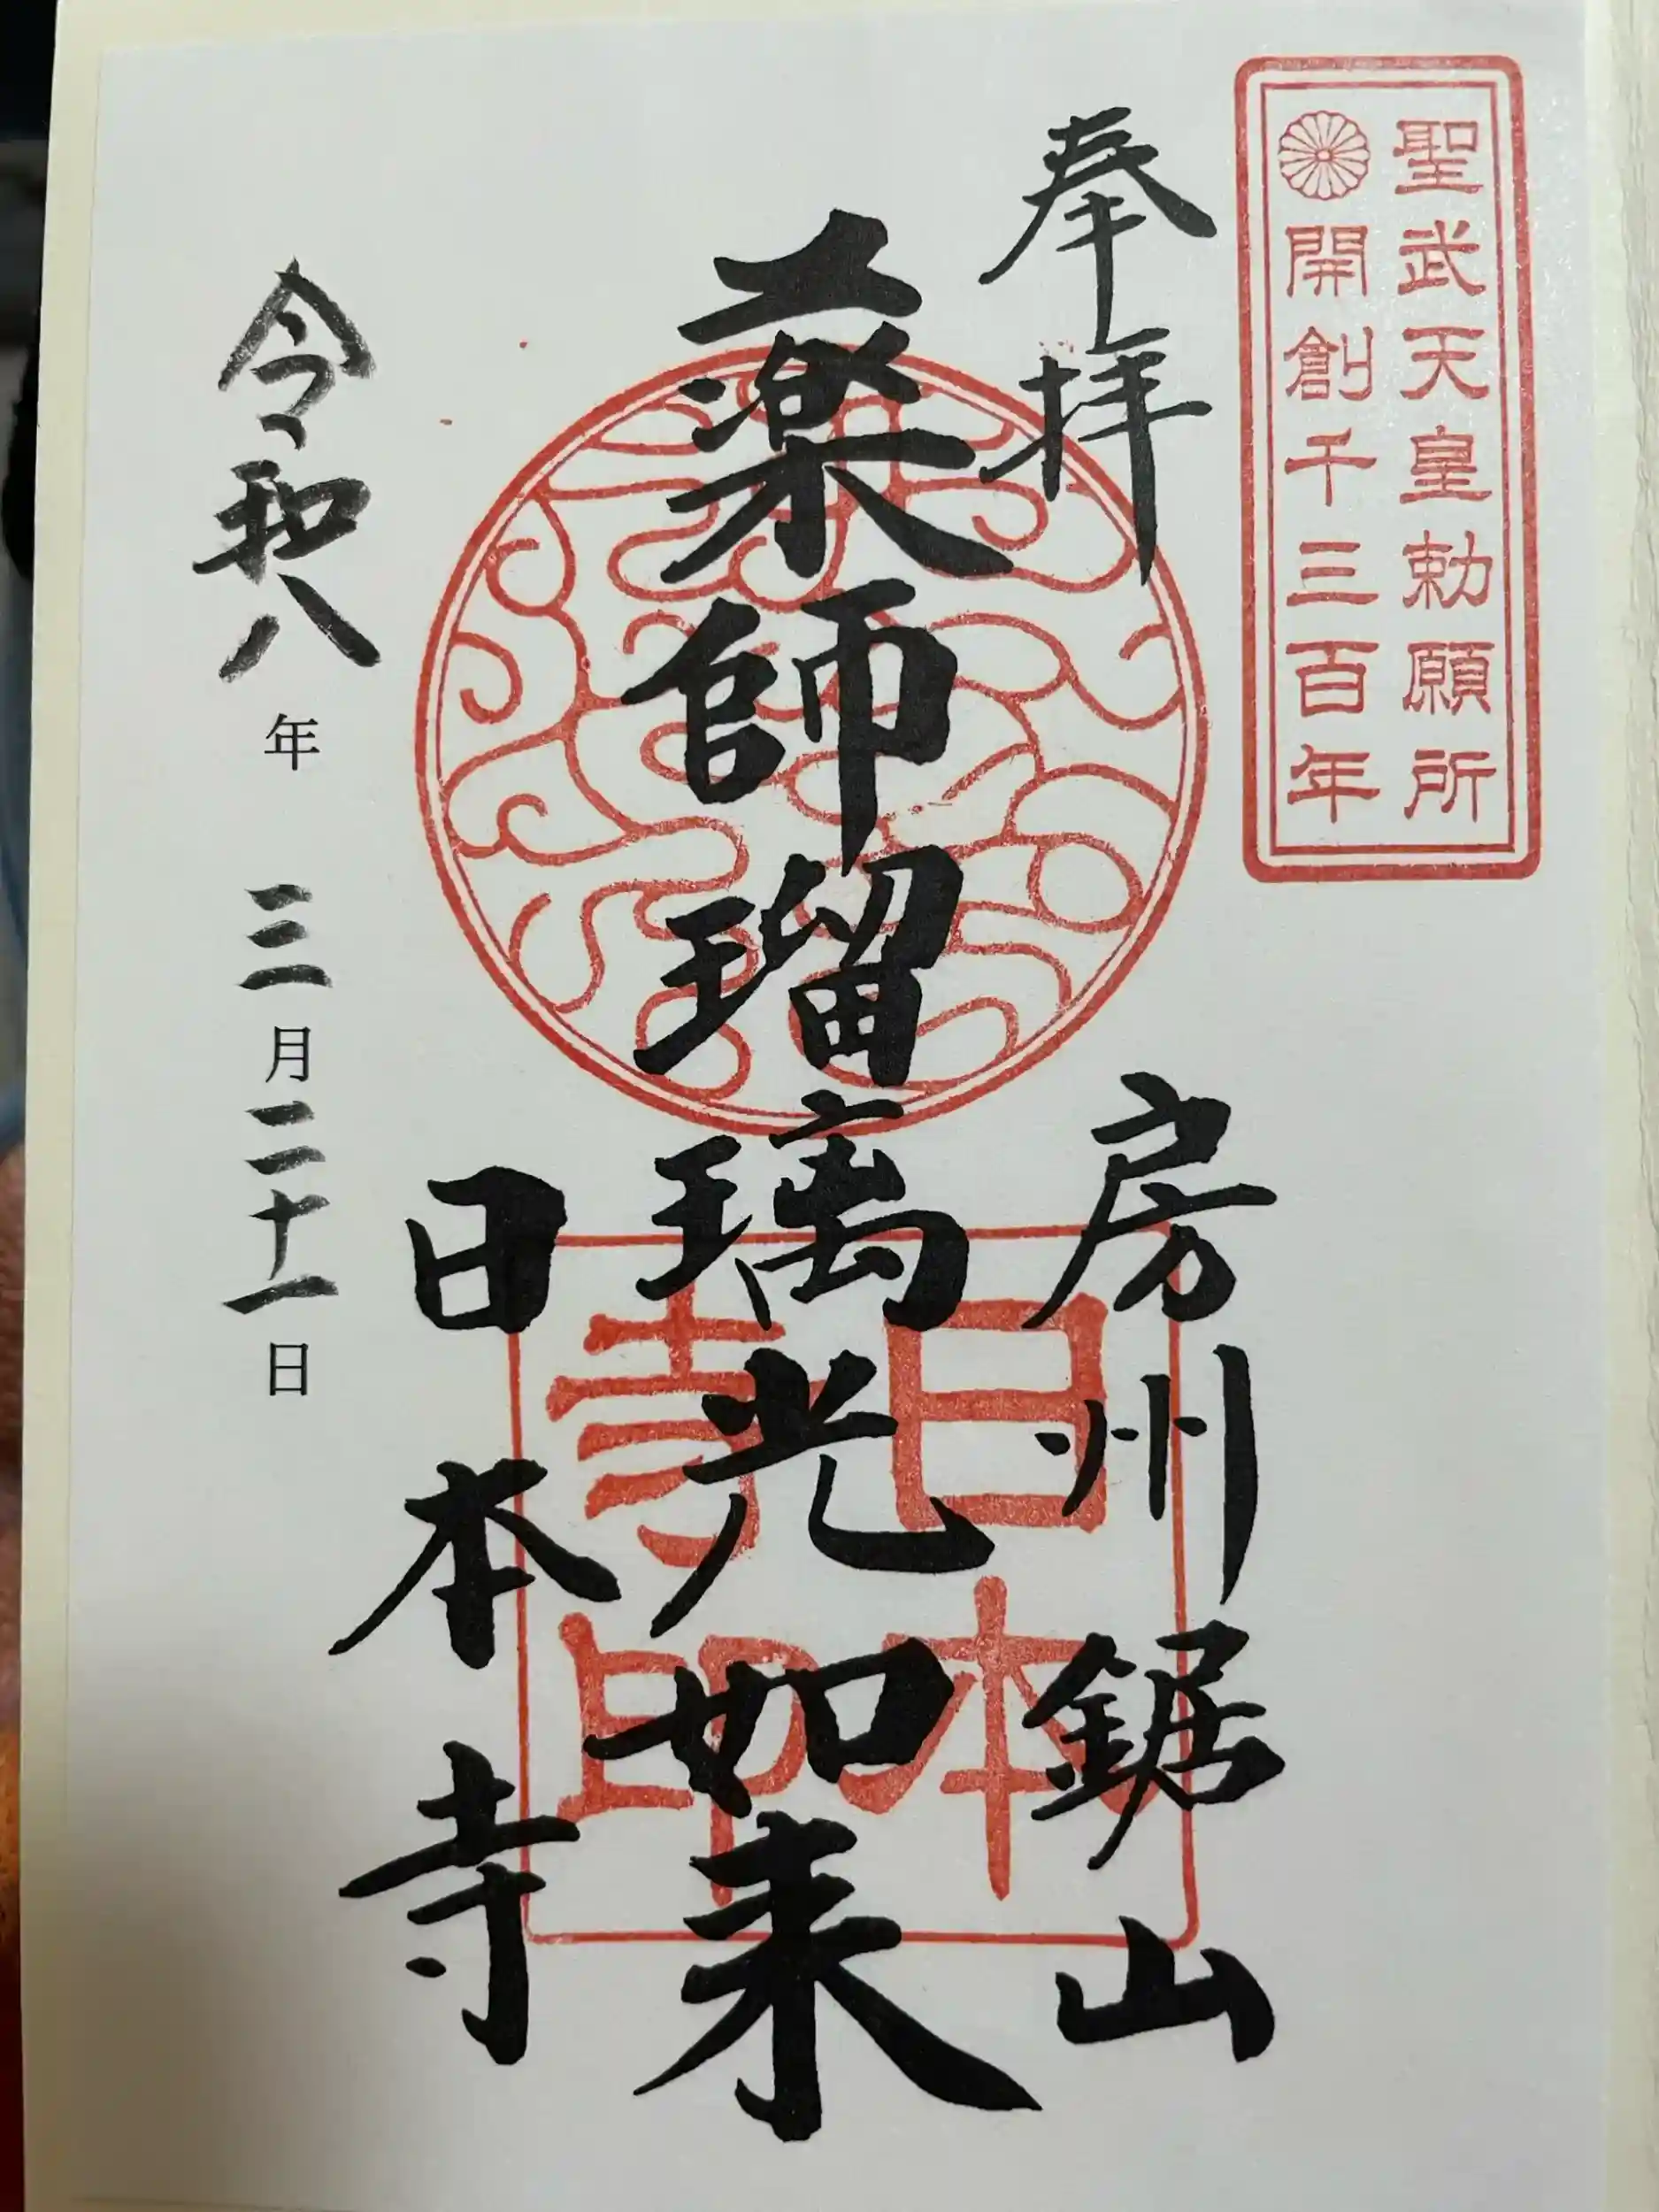 聖武天皇勅願所
開創千三百年
奉拝
房州鋸山
薬師瑠璃光如来
日本
寺印
日本寺
令和八年 三月二十一日